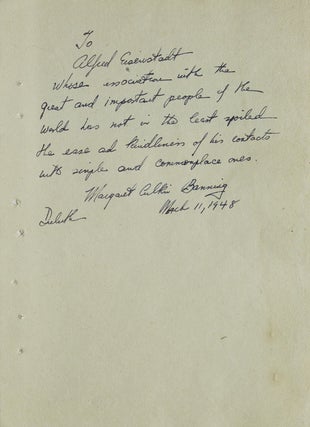 To
Alfred Eisenstadt
Whose association with the
great and important people of the
world has not in the least spoiled
the ease and kindliness of his contacts
with simple and commonplace ones.
Margaret Culkin Banning
Duluth March 11, 1948